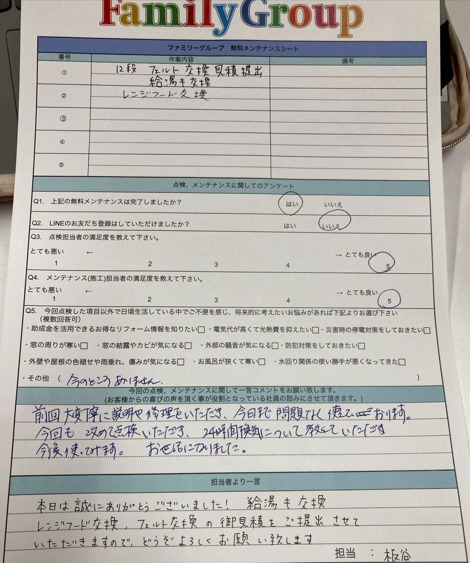 FamilyGroup
ファミリーグループ 無料メンテナンスシート
番号 作業内容 備考
① 12段 フェルト交換見積提出
給湯も交換
② レンジフード交換
③
④
⑤
点検、メンテナンスに関してのアンケート
Q1. 上記の無料メンテナンスは完了しましたか? はい いいえ
Q2. LINEのお友だち登録はしていただけましたか? はい いいえ
Q3. 点検担当者の満足度を教えて下さい。
とても悪い ← → とても良い
1 2 3 4 5
Q4. メンテナンス(施工)担当者の満足度を教えて下さい。
とても悪い ← → とても良い
1 2 3 4 5
Q5. 今回点検した項目以外で日頃生活している中でご不便を感じ、将来的に考えたいお悩みがあれば下記よりお選び下さい
(複数回答可)
・助成金を活用できるお得なリフォーム情報を知りたい□ ・電気代が高くて光熱費を抑えたい□ ・災害時の停電対策をしておきたい□
・窓の周りが寒い□ ・窓の結露やカビが気になる□ ・外部の騒音が気になる□ ・防犯対策をしておきたい□
・外壁や屋根の色褪せや雨垂れ、傷みが気になる□ ・お風呂が狭くて寒い□ ・水回り関係の使い勝手が悪くなってきた□
・その他 ( 今のところありません )
今回の点検、メンテナンスに関して一言コメントをお願い致します。
(お客様からの喜びの声を頂く事が役割となっている社員の励みにさせて頂きます。)
前回大変丁寧に説明や修理をいただき、今日まで問題なく使えております。
今回も改めて点検いただき、24時間換気について教えていただき
今後使ってみます。 お世話になりました。
担当者より一言
本日は誠にありがとうございました! 給湯も交換
レンジフード交換、フェルト交換の御見積をご提出させて
いただきますので、どうぞよろしくお願い致します
担当 : 板谷